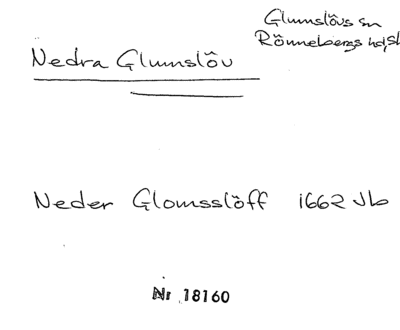 Glumslövs sn
Rönnebergs hd, Sk
Nedra Glumslöv
Neder Glomsslöff 1662 Jb
Nr 18160